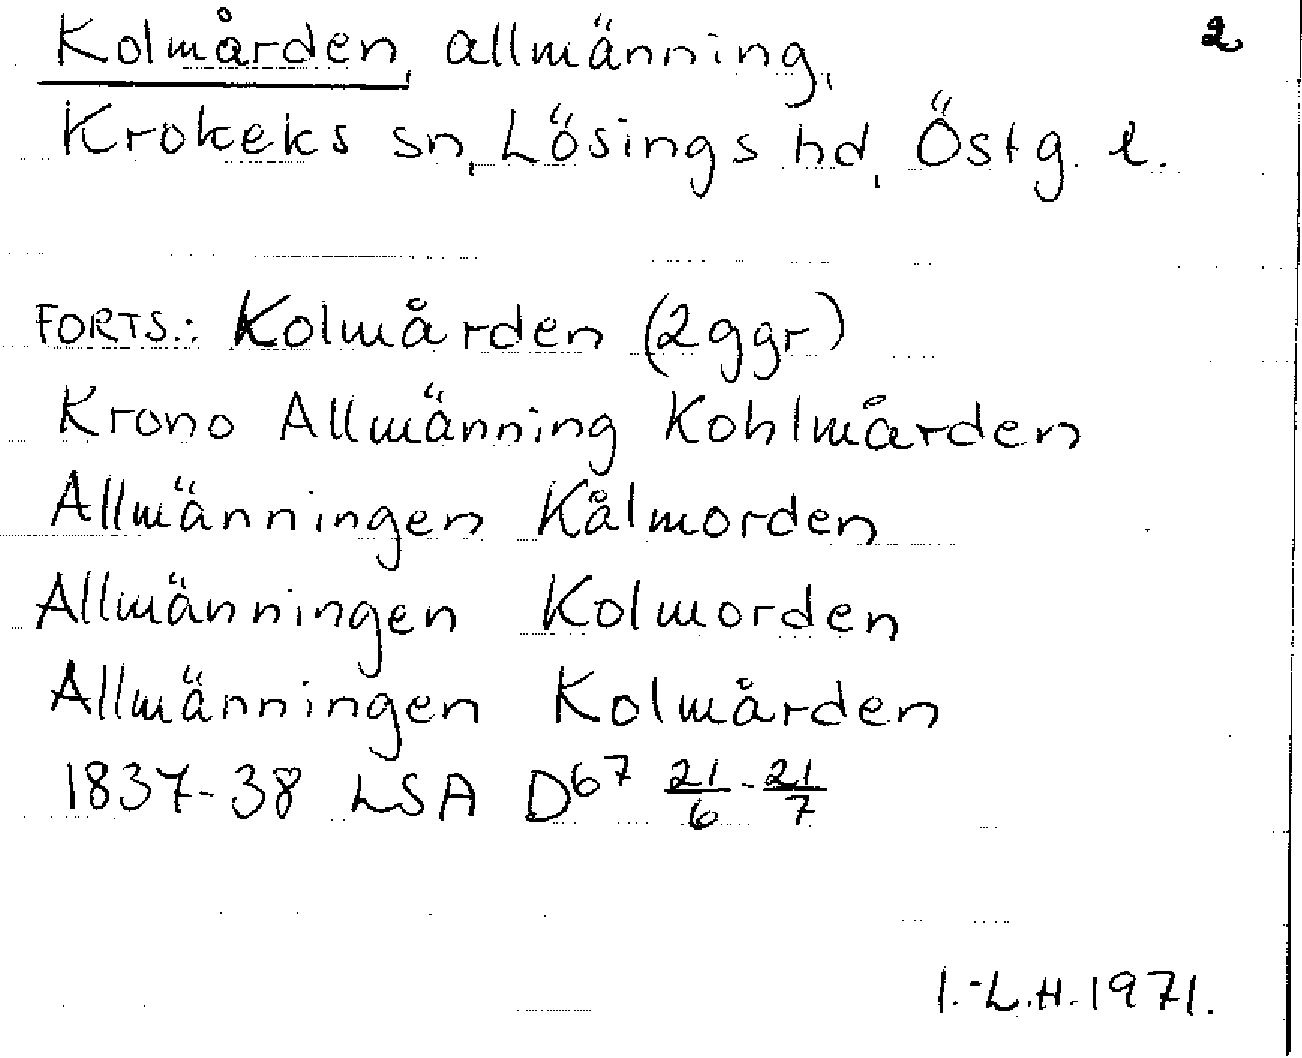 Kolmården, allmänning, 2
Krokeks sn, Lösings hd, Östg. l.
FORTS.: Kolmården (2 ggr)
Krono Allmänning Kohlmården
Allmänningen Kålmorden
Allmänningen Kolmorden
Allmänningen Kolmården
1837-38 LSA D67 21/6 - 21/7
I.-L.H. 1971.